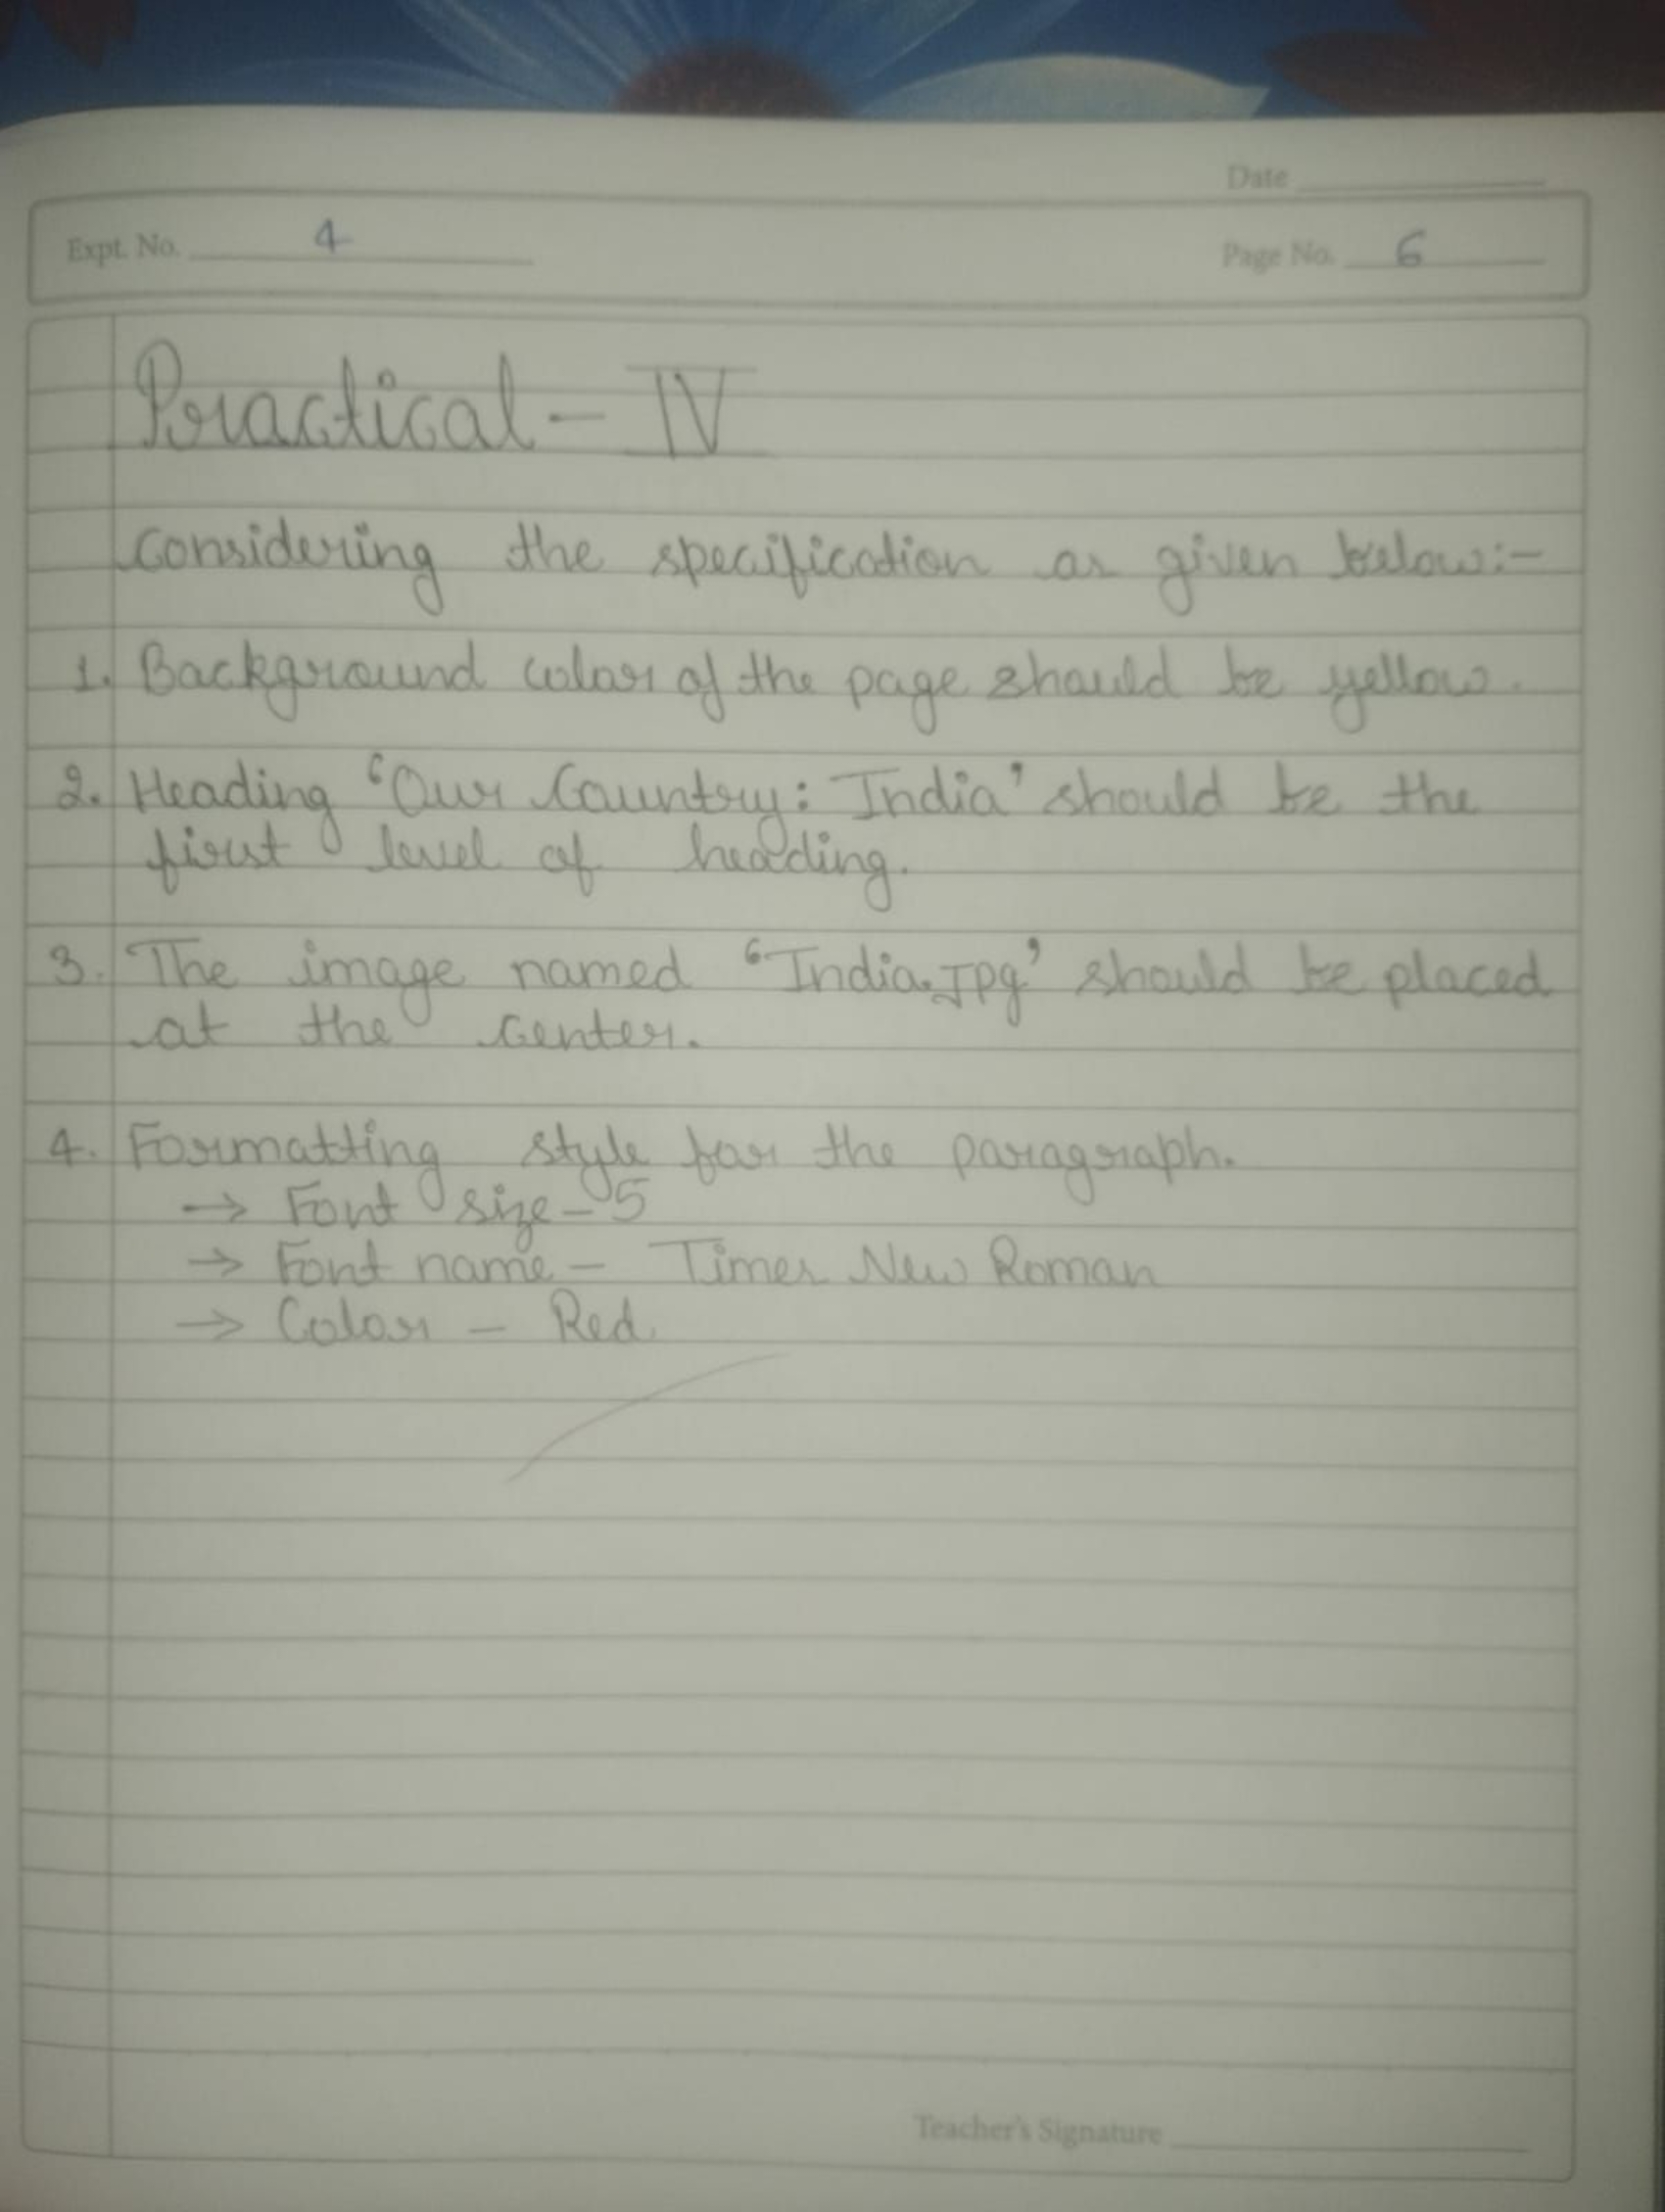 Date
Expt. No. 4
Page No. 6
Practical - IV
Considering the specification as given below:-
1. Background color of the page should be yellow.
2. Heading 'Our Country: India' should be the
first level of heading.
3. The image named 'India.Jpg' should be placed
at the center.
4. Formatting style for the paragraph.
→ Font size - 5
→ Font name - Times New Roman
→ Color - Red.
Teacher's Signature